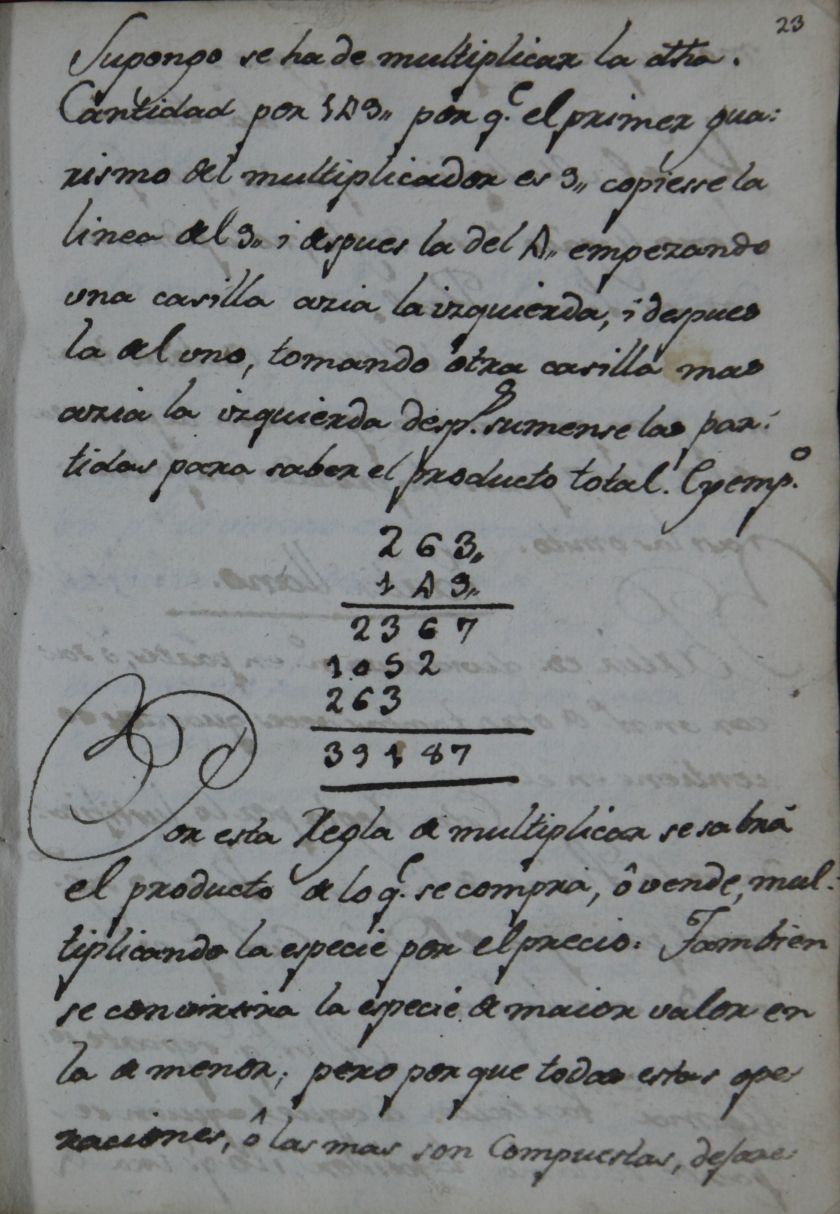 23
Supongo se ha de multiplicar la dha.
Cantidad por 149,, por q.e el primer gua:
rismo del multiplicador es 9,, copiesse la
linea del 9,, i despues la del 4,, empezando
una casilla azia la izquierda, i despues
la del uno, tomando otra casilla mas
azia la izquierda desp.s sumense las par:
tidas para saber el producto total. Exemp.o
263,,
149,,
2367
1052
263
39187
Por esta Regla de multiplicar se sabrá
el producto de lo q.e se compra, ô vende, mul:
tiplicando la especie por el precio: Tambien
se convertira la especie de maior valor en
la de menor; pero por que todas estas ope
raciones, ô las mas son Compuestas, dejare